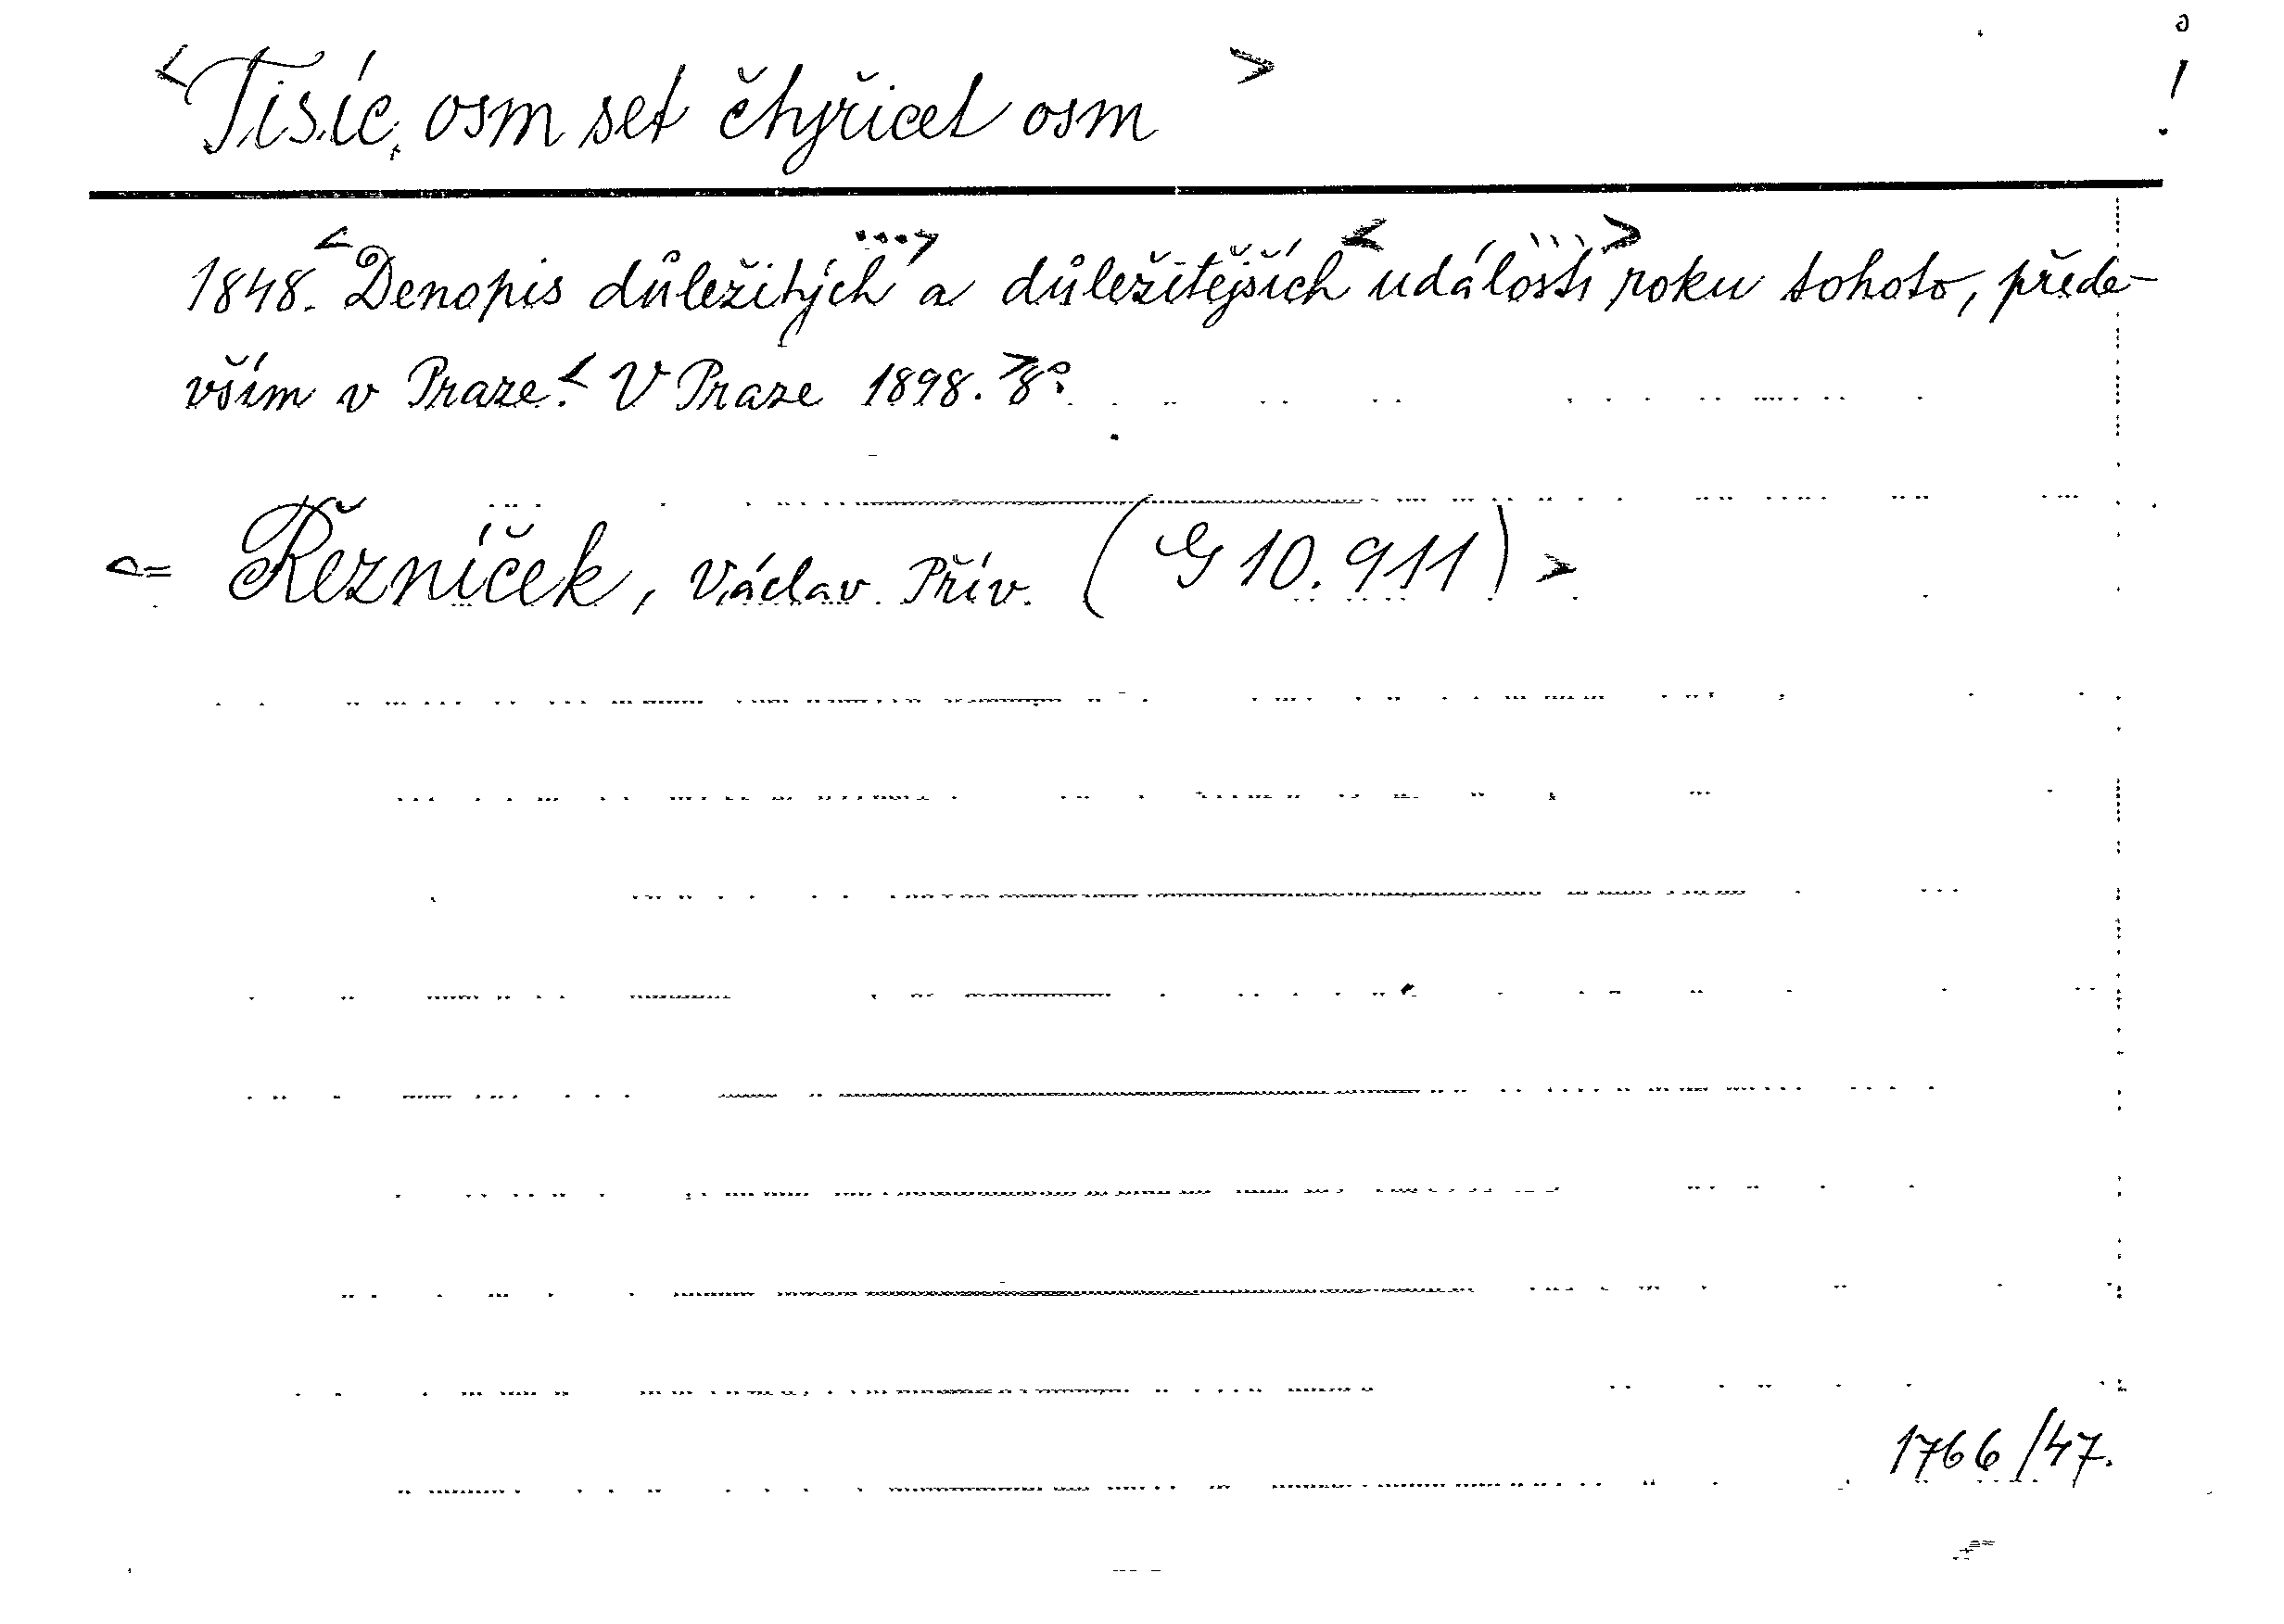 <Tisíc osm set čtyřicet osm> !
1848. <Denopis důležitých ...> a důležitějších <událostí ...> roku tohoto, přede-
vším v Praze.< V Praze 1898.> 8°.
<= Řezníček, Václav. Přív. (G 10.911)>
1766/47.